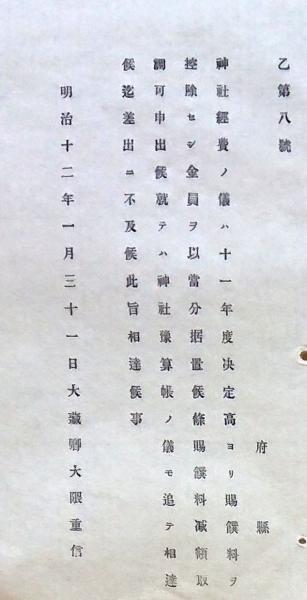 乙第八號
府縣
神社經費ノ儀ハ十一年度決定高ヨリ賜饌料ヲ
控除セシ金員ヲ以當分据置候條賜饌料减額取
調可申出候就テハ神社豫算帳ノ儀モ追テ相達
候迄差出ニ不及候此旨相達候事
明治十二年一月三十一日大藏卿大隈重信